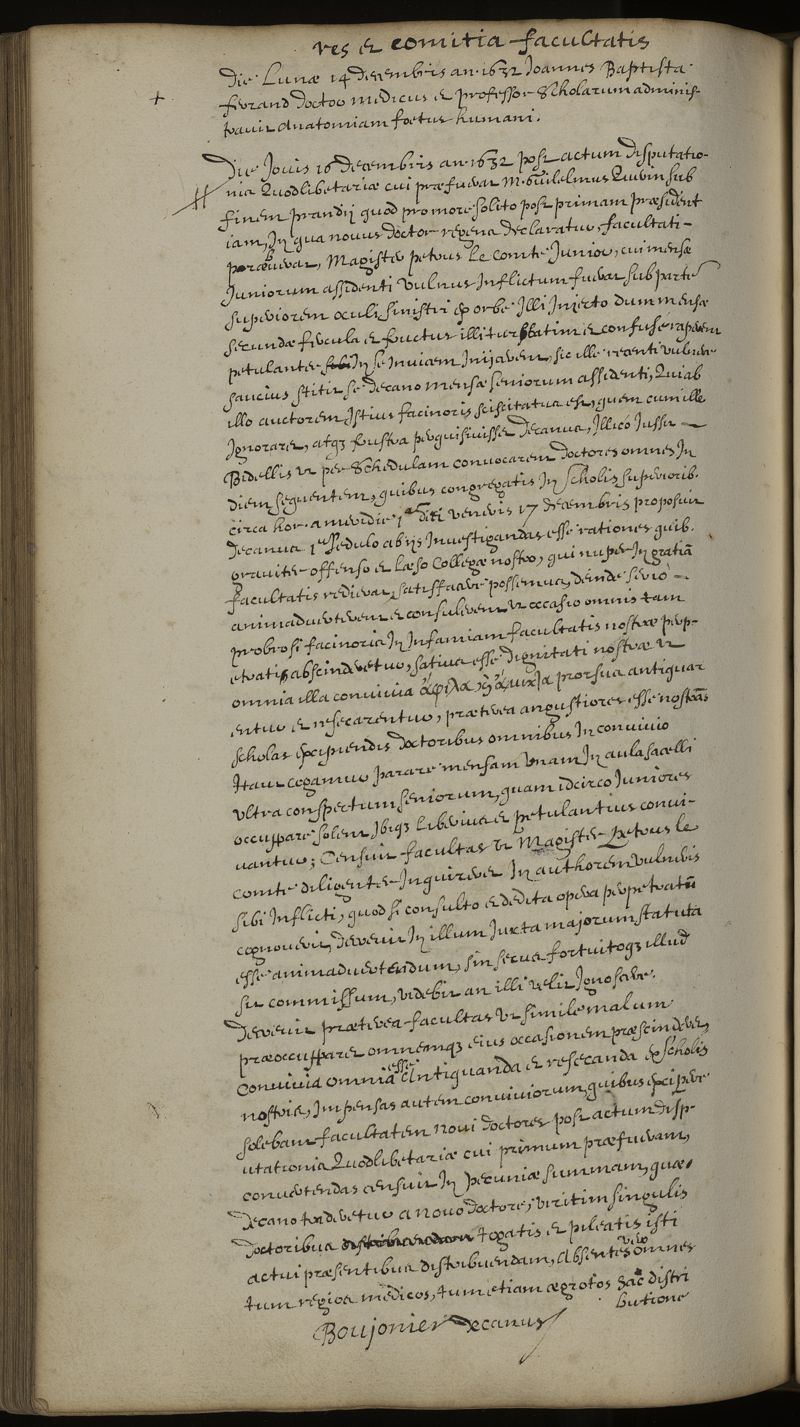 res et comitia facultatis
Die Lunæ 14 decembris an. 1632 Joannes Baptista
ferrand doctor medicus et professor Scholarum adminis-
travit Anatomiam foetus humani.
Die Jovis 16 decembris an. 1632 post actum disputatio-
nis Quodlibetariæ cui præfuerat M. Guilelmus sub
finem prandij quod pro more solito post primam præsident
iam, In qua novus doctor regens declaratur, facultati-
præbuerat, Magister petrus le Comte Junior, cui mensæ
Juniorum assidenti vulnus Inflictum fuerat sub parte
superiorem oculi sinistri ex orbe illi Injecto dum mensæ
secundæ fercula et fructus illi turbatim et confuse raperent
petulanter In se Invicem Inijcerent, sic ille recenti vulnere
saucius stitit se decano mensæ seniorum assidenti, Qui ab
illo auctorem Istius facinoris sciscitatus est, quem cum ille
Ignoraret, atq3 frustra perquisivisset decanus, Illico Jussit
Bidellis ut per Schedulam convocarent doctores omnes In
diem sequentem, quibus congregatis In Scholis superiorib.
circa hor. a meridie 1am die veneris 17 decembris proposuit
decanus 1° sedulo ab ijs Investigandas esse rationes quib.
graviter offenso et læso Collegæ nostro, qui nuper In gratiā
facultatis redierat, satisfacere possemus, deinde serio
animadverterent et consulerent ut occasio omnis tam
probrosi facinoris In Infamiam facultatis nostræ perp-
etrati abscinderetur, satius esse dignitati nostræ ut
omnia illa convivia ἄφιλα prorsus antiquar
entur et resecarentur, præterea angustiores esse nostrās
scholas excipiendis doctoribus omnibus In convivio
Itaut cogamur parare mensam unam In aula sacelli
ultra conspectum seniorum, quam idcirco Juniores
occuppare solent Ibiq3 liberius et petulantius convi-
vantur; Censuit facultas ut Magister Petrus le
comte diligenter Inquireret In authorem vulneris
sibi Inflicti, quod si consulto et dedita opera perpetratū
cognoverit, decrevit In illum Juxta majorum statuta
esse animadvertendum, sin secus fortuitoq3 illud
sit commissum, videbit an illi velit Ignoscere.
Decrevit præterea facultas ut simile malum
præoccupparet omnemq3 eius occasionem præscinderet,
Convivia omnia esse Antiquanda et resecanda ex scholis
nostris, Impensas autem conviviorum, quibus excipere
solebant facultatem novi doctores post actum disp-
utationis Quodlibetariæ cui primum præfuerant,
convertendas censuit In pecuniæ summam, quæ
decano traderetur a novo doctore, viritim singulis
doctoribus togatis et pileatis isti
actui præsentibus distribuendam, Absentes vero omnes
tum regios medicos, tum etiam ægrotos hac distri
butione
Boujonier Decanus